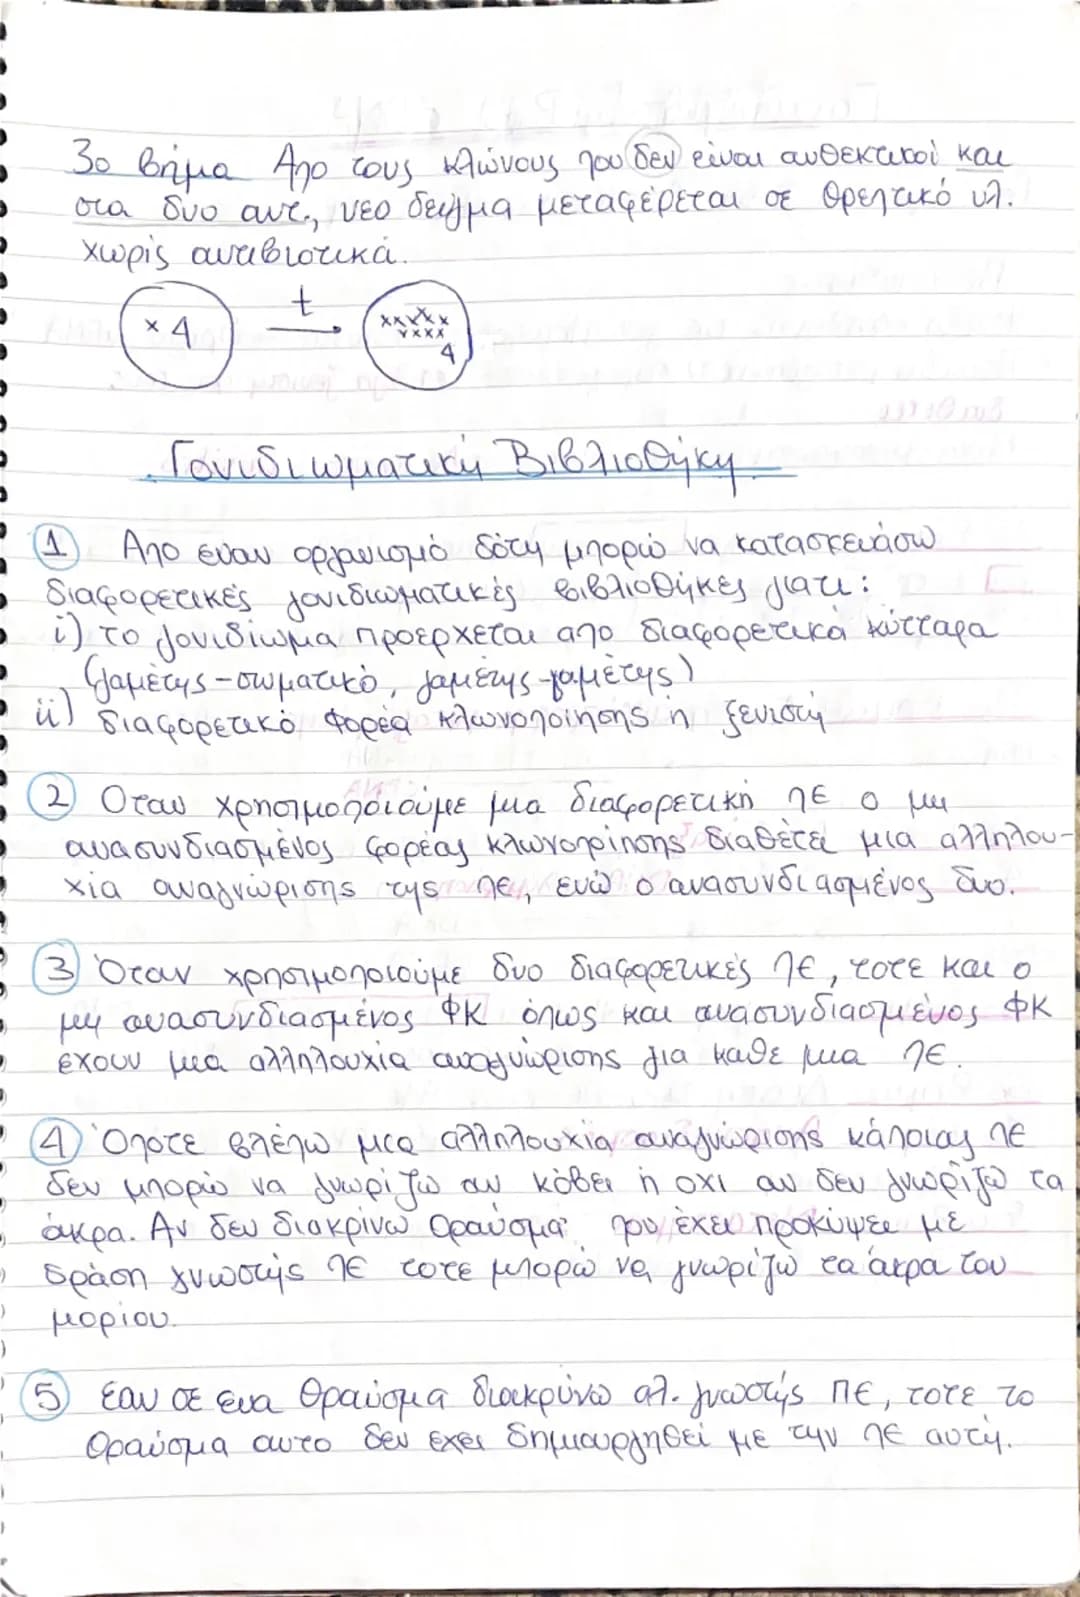 3ο βήμα Απο τους κλώνους που δεν είναι ανθεκτικοί και
στα δυο αντ., νεο δείγμα μεταφέρεται σε θρεπτικό υλ.
χωρίς αντιβιοτικά.
x 4 t xxxxxx
xxxx
4
Γονιδιωματική Βιβλιοθήκη
1 Απο έναν οργανισμό δότη μπορώ να κατασκευάσω
διαφορετικές γονιδιωματικές βιβλιοθήκες γιατι:
i) το γονιδίωμα προέρχεται απο διαφορετικά κύτταρα
(γαμέτης-σωματικό, γαμέτης-γαμέτης)
ii) διαφορετικό φορέα κλωνοποίησης η ξενιστή
2 Οταν χρησιμοποιούμε μια διαφορετική ΠΕ ο μη
ανασυνδιασμένος φορέας κλωνοποίησης διαθέτει μια αλληλου-
χία αναγνώρισης της ΠΕ, ενώ ο ανασυνδιασμένος δυο.
3 Όταν χρησιμοποιούμε δυο διαφορετικές ΠΕ, τοτε και ο
μη ανασυνδιασμένος ΦΚ όπως και ανασυνδιασμένος ΦΚ
έχουν μια αλληλουχία αναγνώρισης για καθε μια ΠΕ.
4 Όποτε βλέπω μια αλληλουχία αναγνώρισης κάποιας ΠΕ
δεν μπορώ να γνωρίζω αν κόβει ή οχι αν δεν γνωρίζω τα
άκρα. Αν δεν διακρίνω θραύσμα που έχει προκύψει με
δράση γνωστής ΠΕ τοτε μπορώ να γνωρίζω τα άκρα του
μορίου.
5 Εαν σε ένα θραύσμα διακρίνω αλ. γνωστής ΠΕ, τοτε το
θραύσμα αυτο δεν έχει δημιουργηθεί με την ΠΕ αυτή.